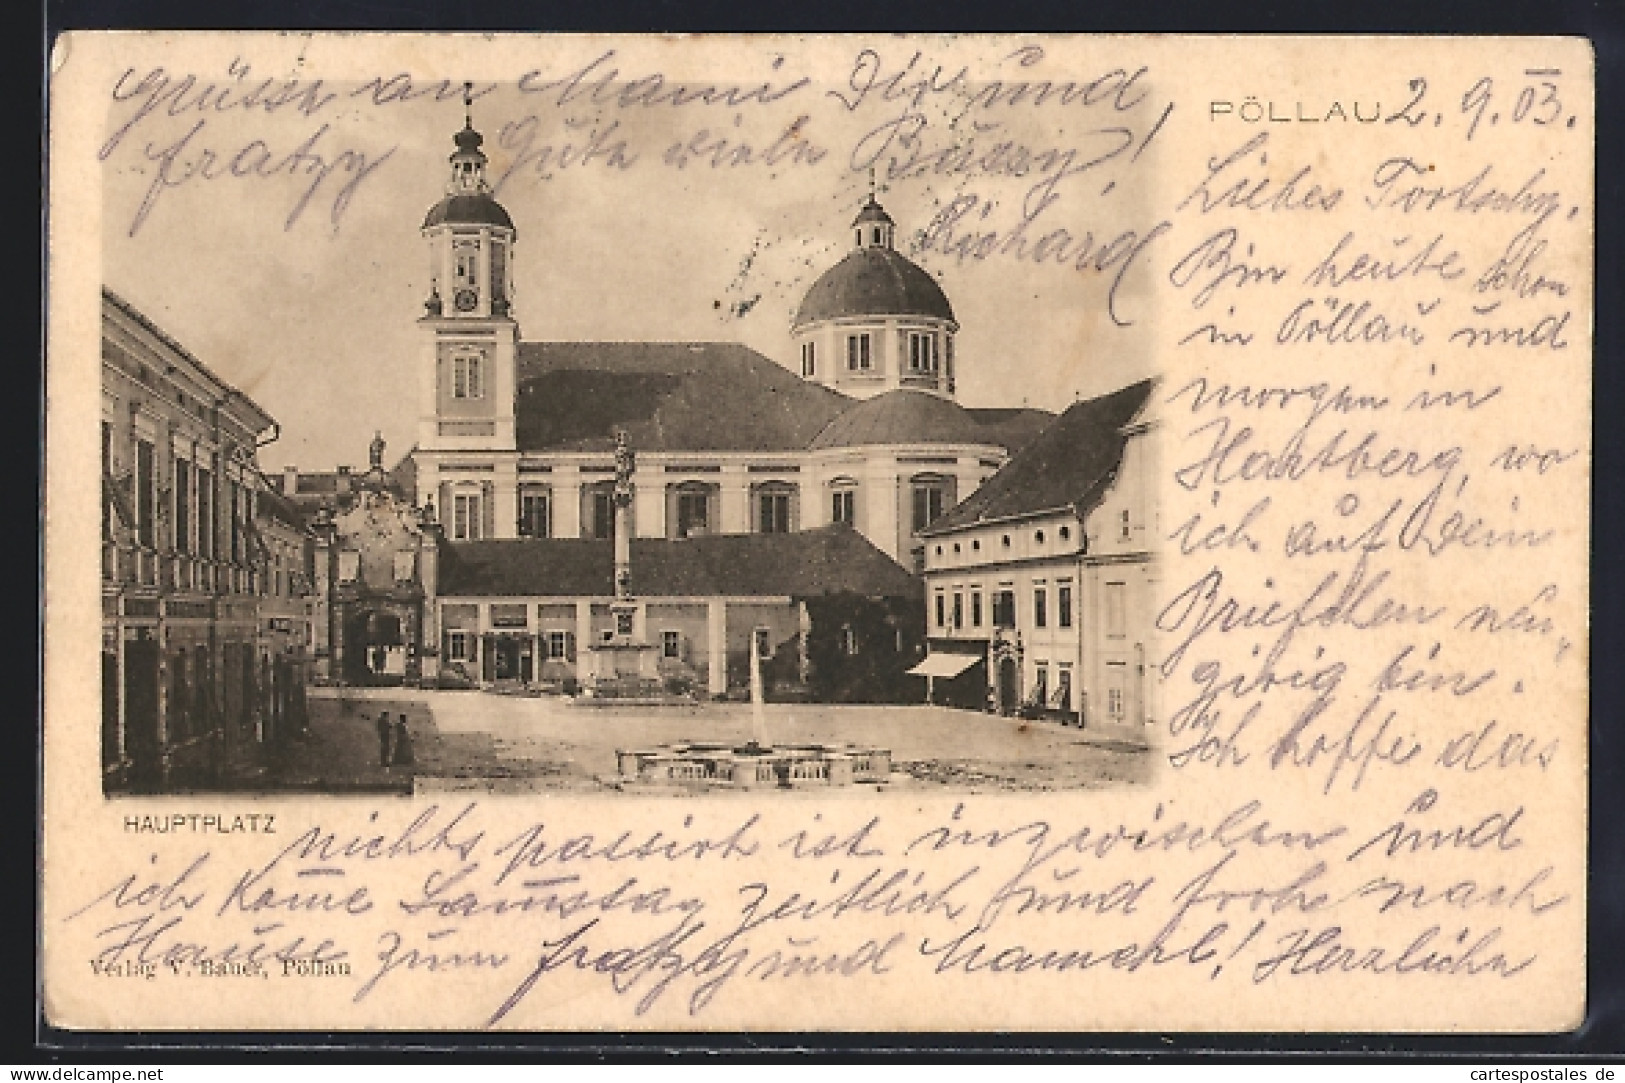 PÖLLAU 2. 9. 03.
Liebes Tortschy.
Bin heute schon
in Pöllau und
morgen in
Hartberg, wo
ich auf Dein
Briefchen neu„
girig bin.
Ich hoffe das
HAUPTPLATZ
nichts passirt ist inzwischen und
ich kom̄e Sam̄stag zeitlich und froh nach
Hause zum Fratzy und Mamerl! Herzliche
Verlag V. Bauer, Pöllau
Grüsse an Mami Dir und
Fratzy Gute viele Bussy!
Richard
cartespostales de